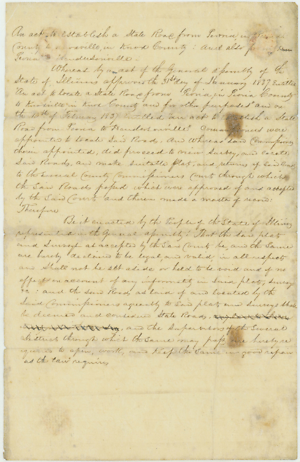 An act to establish a State Road from Peoria, in Peoria
County to Knoxville, in Knox County. And also from
Peoria to Hendersonville.
Whereas by an act of the General Assembly of the
State of Illinois approved the day of January 1837 entitled
An act to locate a State Road from Peoria, in Peoria County
to Knoxville in Knox County and for other purposes and on
the of February 1837 entitled an act to establish a State
Road from Peoria to Hendersonville Commissioners were
appointed to locate Said Roads. And Whereas Said Commissioners
them appointed, did proceed to view, Survey, and locate
Said Roads, and make suitable plats, and returns of
to the several County Commissioners Court through which
the Said Roads passed which were approved of and accepted
by the Said Courts and them made a matter of record
Therefore
Be it enacted by the People of the State of Illinois
represented in the General Assembly: That the Said plats
and Surveys as accepted by the Said Courts be, and the Same
are hereby declared to be legal and valid, in all respects
and Shall not be set aside or held to be void and of no
effect on account of any informality in Said plats, Surveys
&c and the Said Roads as laid off and located by the
Said Commissioners agreeably to Said plats and Surveys Shall
be deemed and considered State Roads,
and the Supervisors of the Several
districts through which the Same may pass are hereby
required to open, work, and keep the Same in good repair
as the law requires